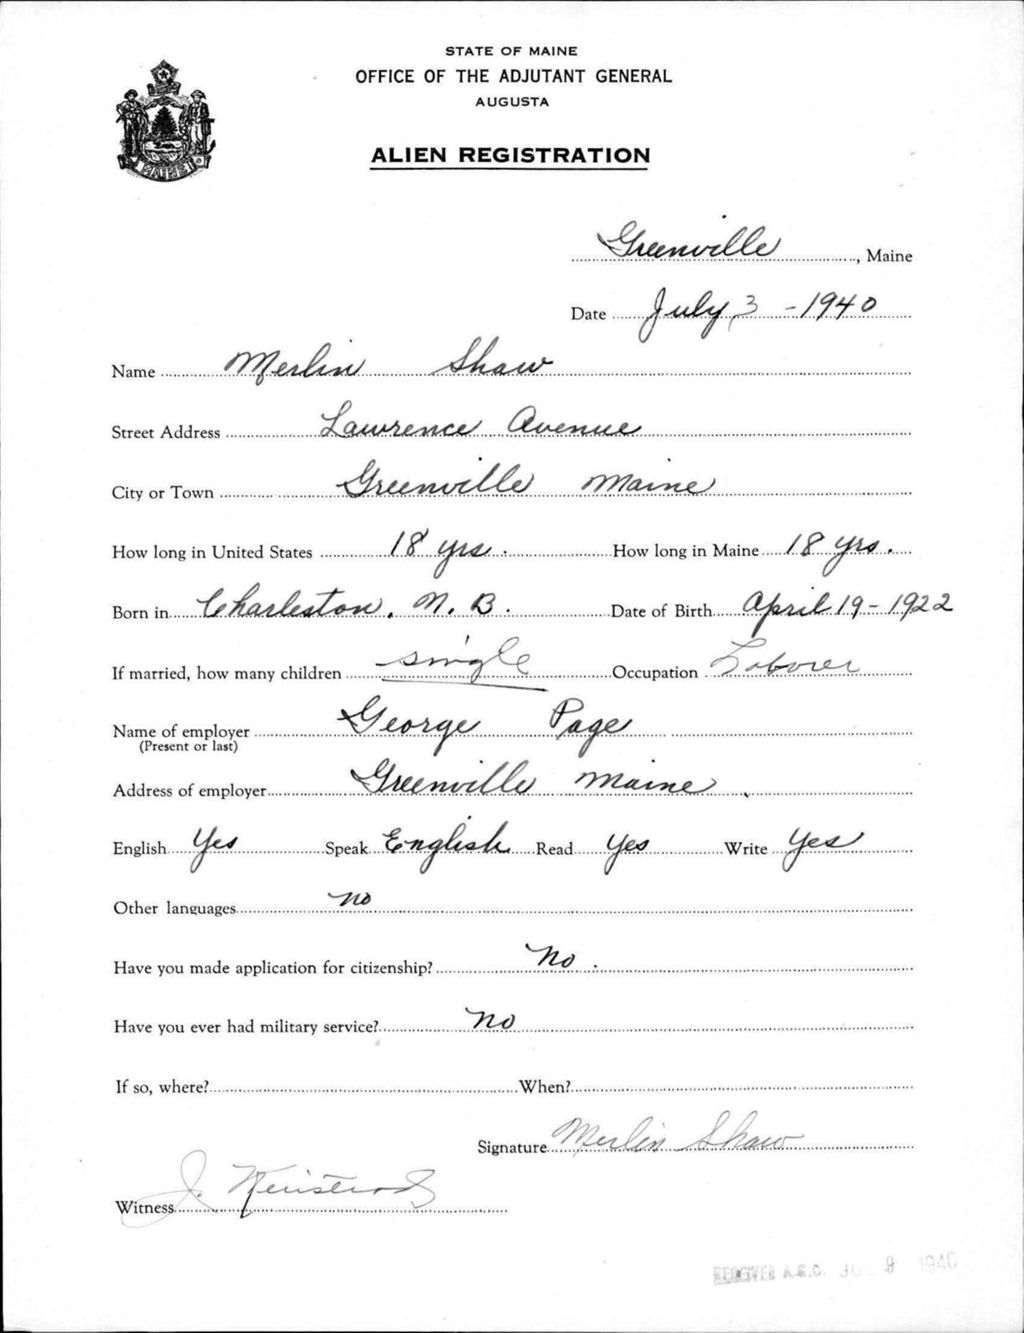 STATE OF MAINE
OFFICE OF THE ADJUTANT GENERAL
AUGUSTA
ALIEN REGISTRATION
MAINE
Greenville, Maine
Date July 3 - 1940
Name Merlin Shaw
Street Address Lawrence Avenue
City or Town Greenville Maine
How long in United States 18 yrs. How long in Maine 18 yrs.
Born in Charleston, N. B. Date of Birth April 19 - 1922
If married, how many children single Occupation Laborer
Name of employer George Page
(Present or last)
Address of employer Greenville Maine
English Yes Speak English Read Yes Write Yes
Other languages no
Have you made application for citizenship? No.
Have you ever had military service? No
If so, where? When?
Signature Merlin Shaw
Witness J.
RECEIVED A.G.O. 9 1940